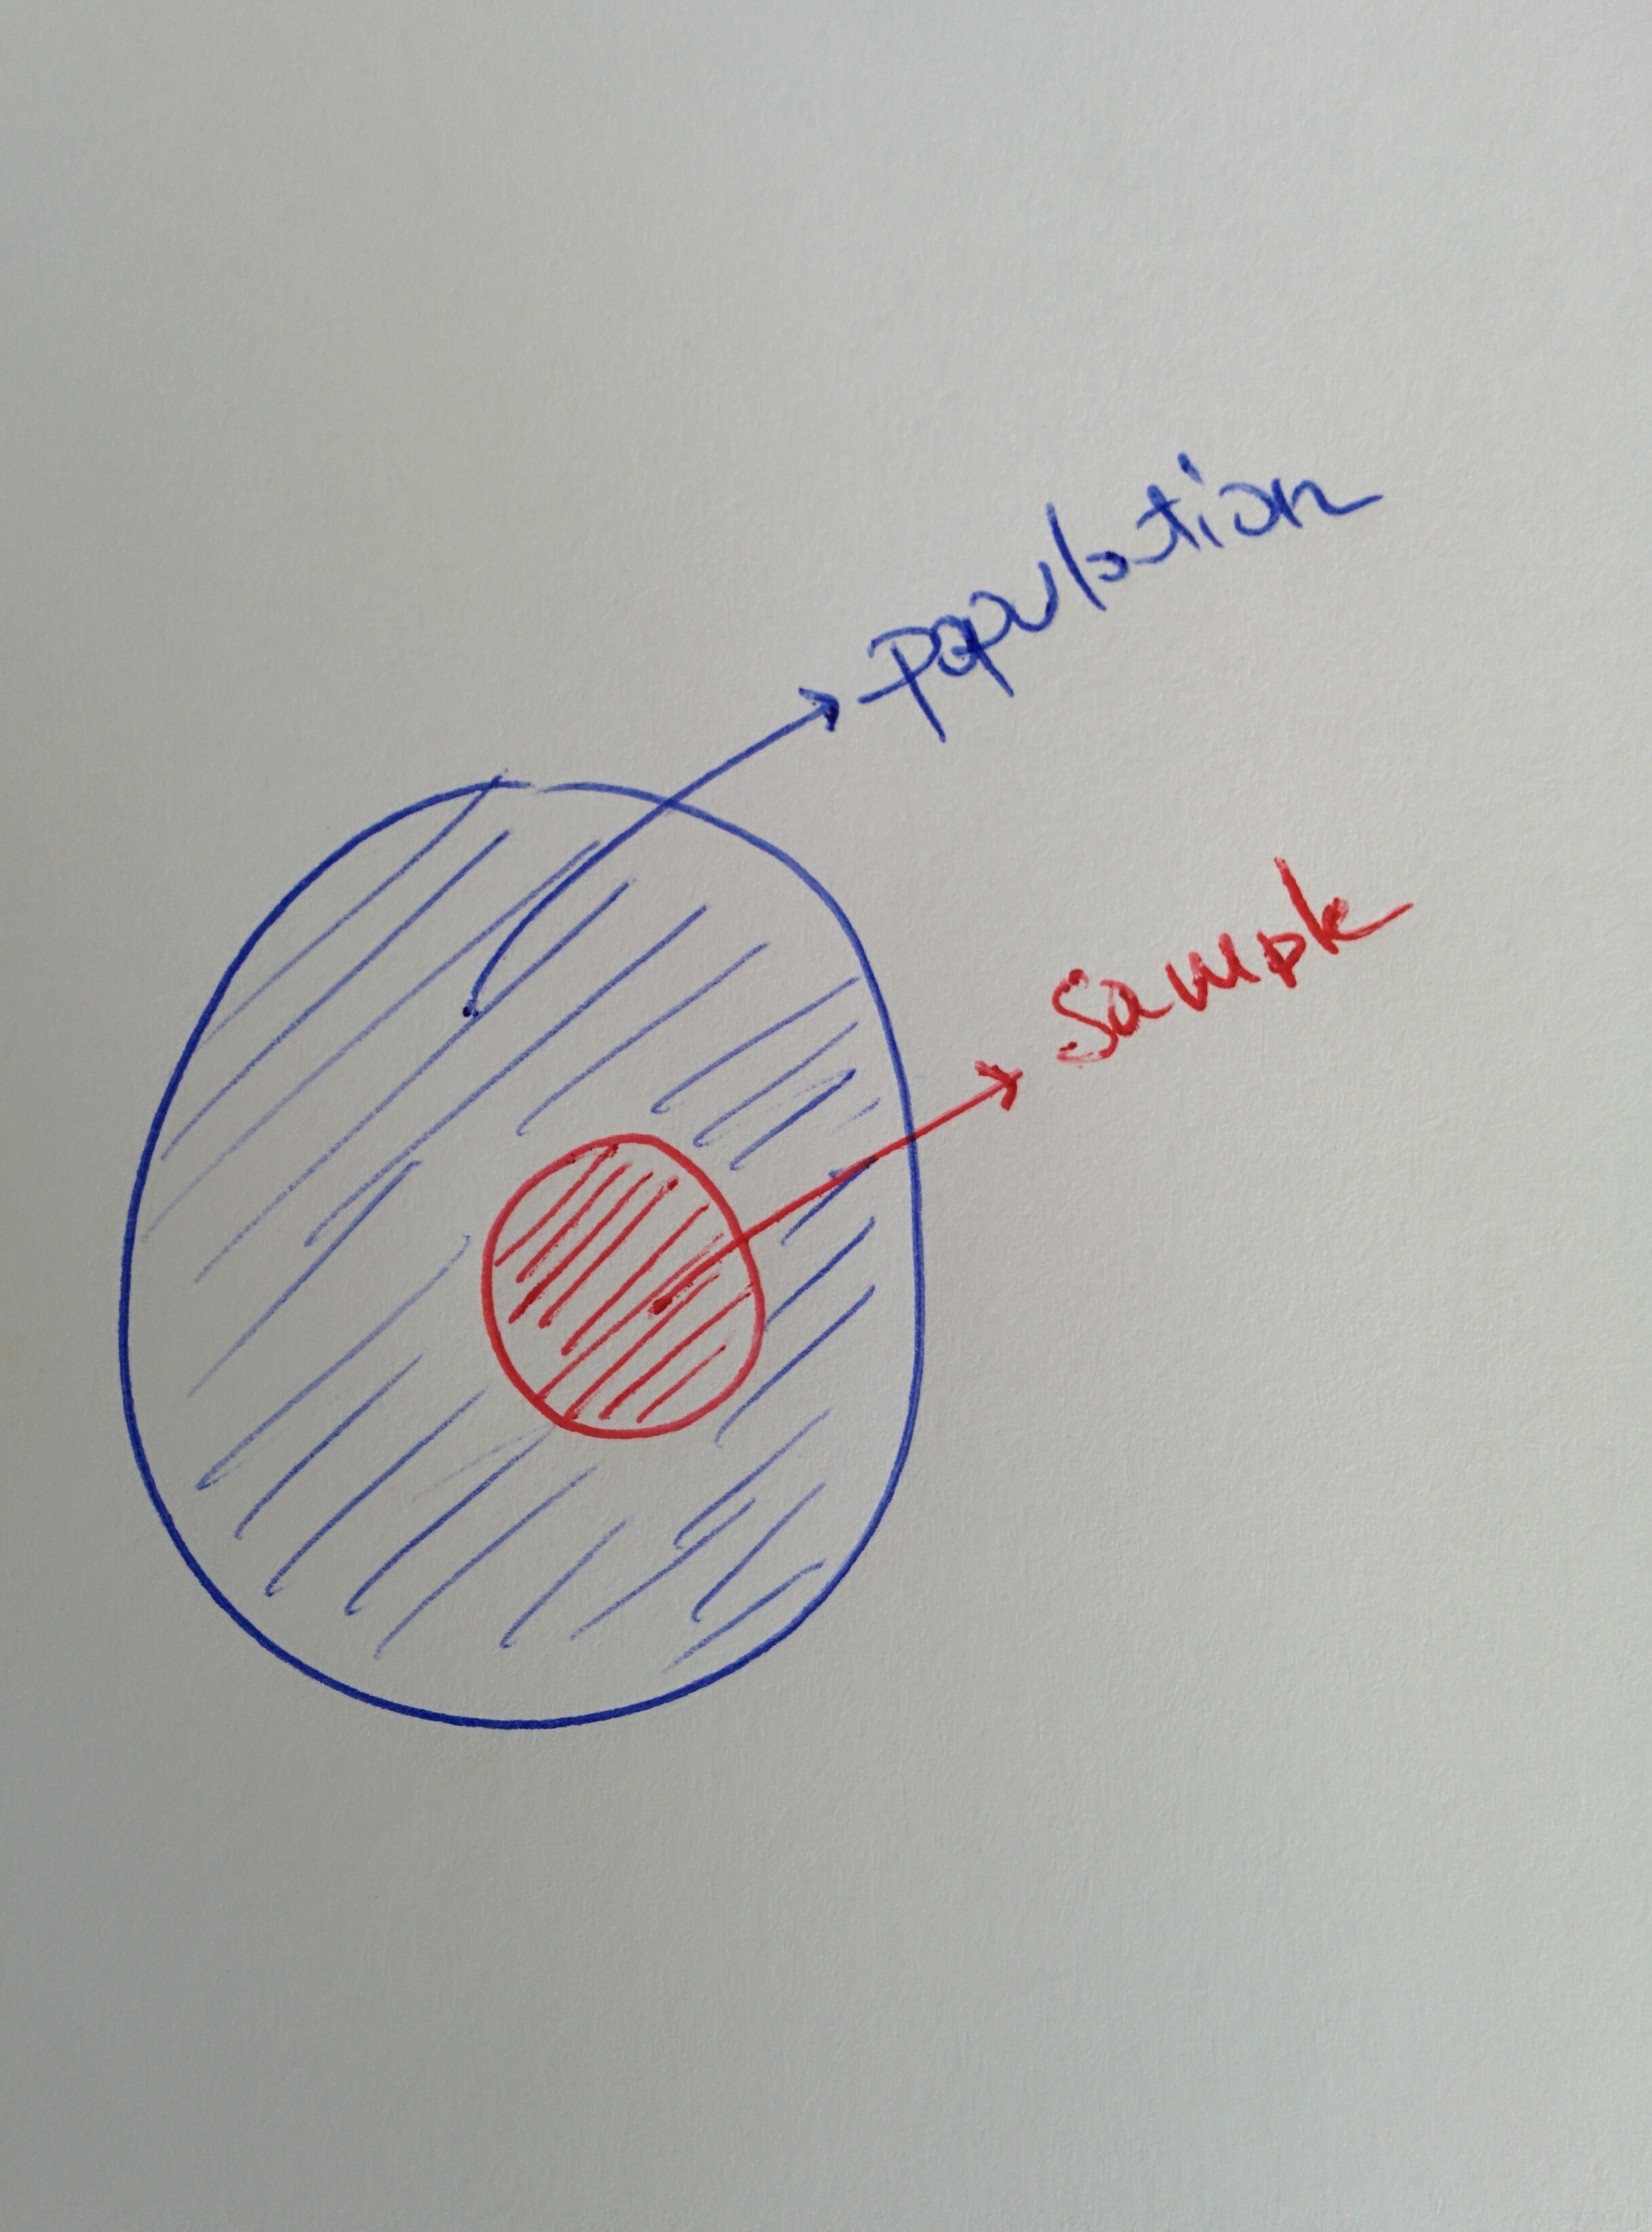 population
sample